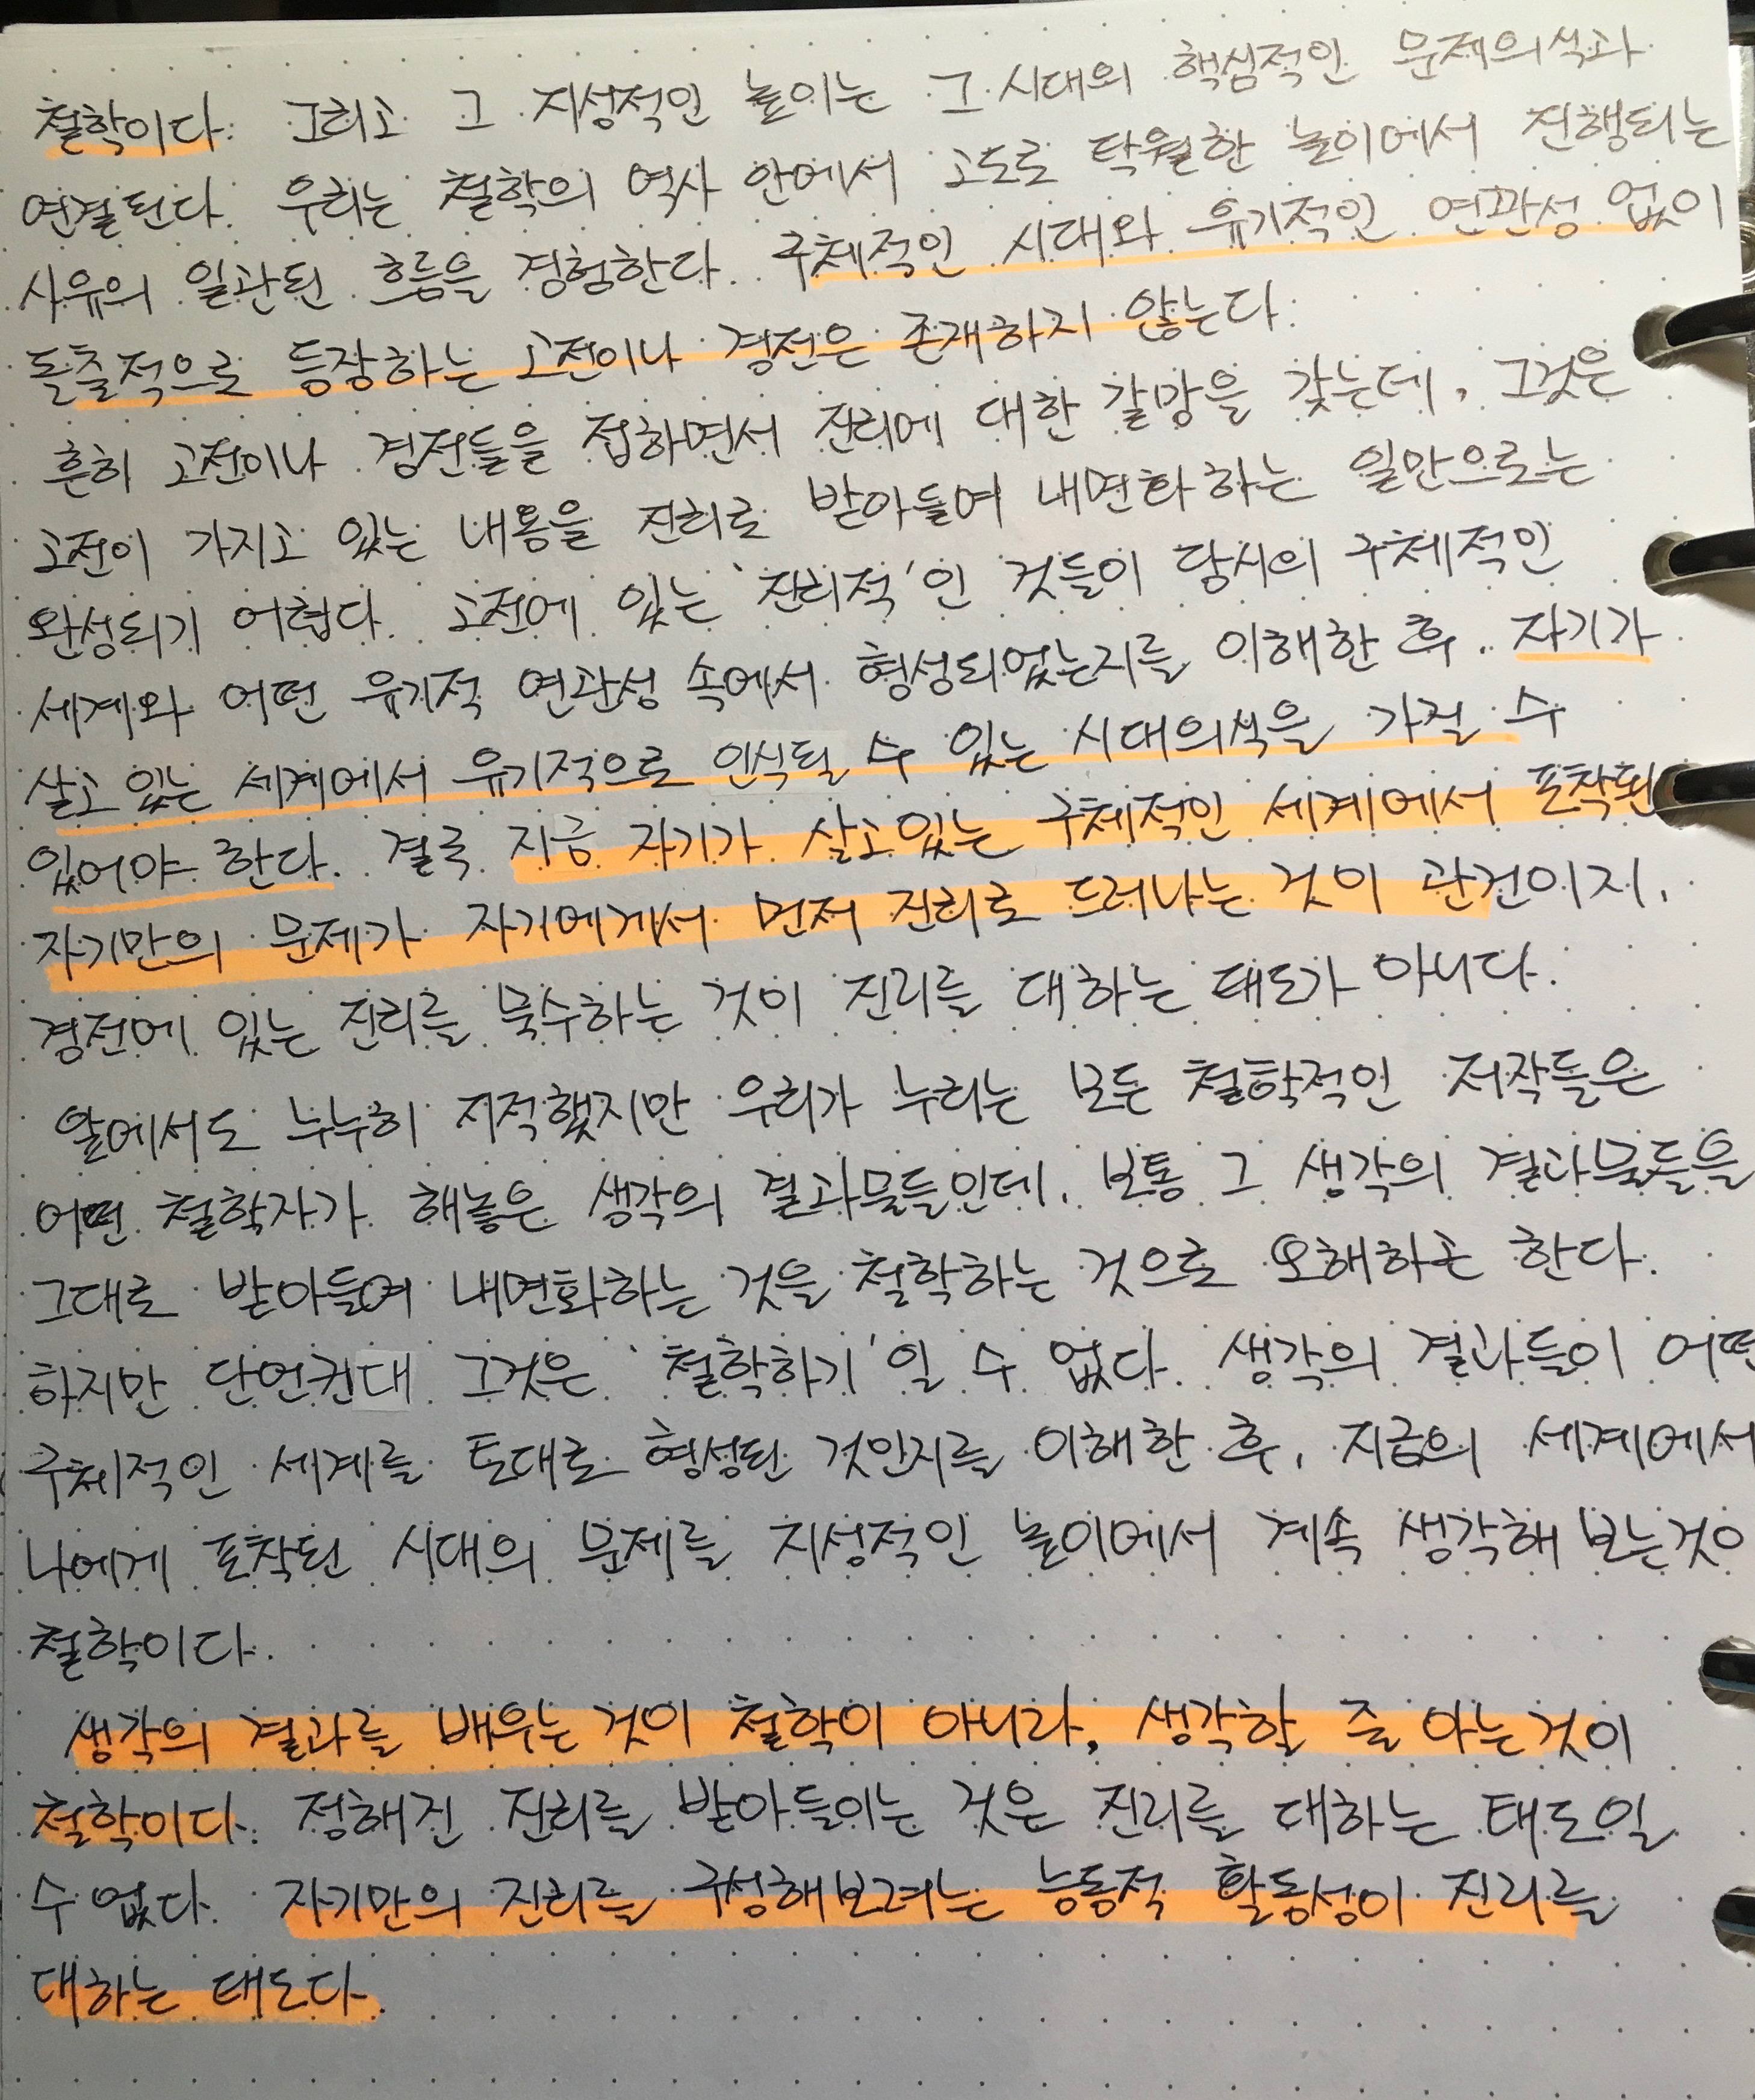 철학이다. 그리고 그 지성적인 높이는 그 시대의 핵심적인 문제의식과
연결된다. 우리는 철학의 역사 안에서 고도로 탁월한 높이에서 진행되는
사유의 일관된 흐름을 경험한다. 구체적인 시대와 유기적인 연관성 없이
돌출적으로 등장하는 고전이나 경전은 존재하지 않는다.
흔히 고전이나 경전들을 접하면서 진리에 대한 갈망을 갖는데, 그것은
고전이 가지고 있는 내용을 진리로 받아들여 내면화하는 일만으로는
완성되기 어렵다. 고전에 있는 '진리적'인 것들이 당시의 구체적인
세계와 어떤 유기적 연관성 속에서 형성되었는지를 이해한 후, 자기가
살고 있는 세계에서 유기적으로 인식될 수 있는 시대의식을 가질 수
있어야 한다. 결국 지금 자기가 살고있는 구체적인 세계에서 포착된
자기만의 문제가 자기에게서 먼저 진리로 드러나는 것이 관건이지,
경전에 있는 진리를 묵수하는 것이 진리를 대하는 태도가 아니다.
앞에서도 누누히 지적했지만 우리가 누리는 모든 철학적인 저작들은
어떤 철학자가 해놓은 생각의 결과물들인데, 보통 그 생각의 결과물들을
그대로 받아들여 내면화하는 것을 철학하는 것으로 오해하곤 한다.
하지만 단언컨대 그것은 '철학하기'일 수 없다. 생각의 결과들이 어떤
구체적인 세계를 토대로 형성된 것인지를 이해한 후, 지금의 세계에서
나에게 포착된 시대의 문제를 지성적인 높이에서 계속 생각해 보는것이
철학이다.
생각의 결과를 배우는 것이 철학이 아니라, 생각할 줄 아는것이
철학이다. 정해진 진리를 받아들이는 것은 진리를 대하는 태도일
수 없다. 자기만의 진리를 구성해보려는 능동적 활동성이 진리를
대하는 태도다.